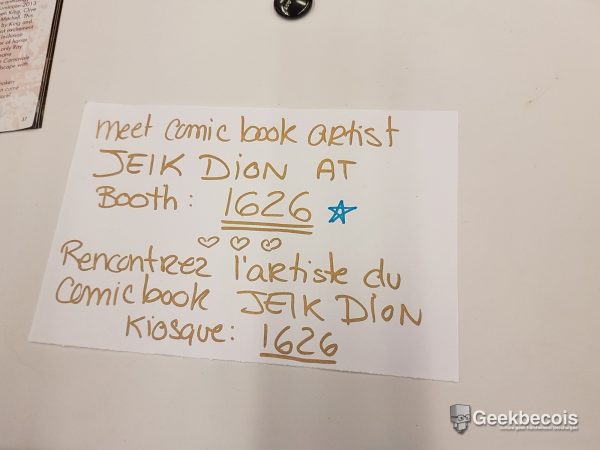 meet comic book artist
JEIK DION AT
Booth: 1626
Rencontrez l'artiste du
Comic book JEIK DION
Kiosque: 1626
Geekbecois